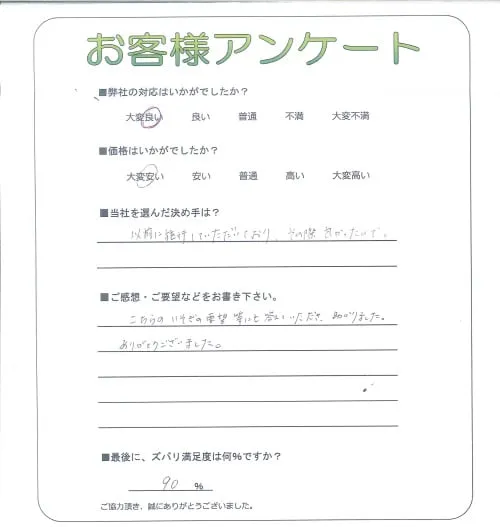 お客様アンケート
■弊社の対応はいかがでしたか？
大変良い 良い 普通 不満 大変不満
■価格はいかがでしたか？
大変安い 安い 普通 高い 大変高い
■当社を選んだ決め手は？
以前に施行していただいており、その際良かったので。
■ご感想・ご要望などをお書き下さい。
こちらのいそぎの要望等にも答えていただき、助かりました。
ありがとうございました。
■最後に、ズバリ満足度は何%ですか？
90 %
ご協力頂き、誠にありがとうございました。